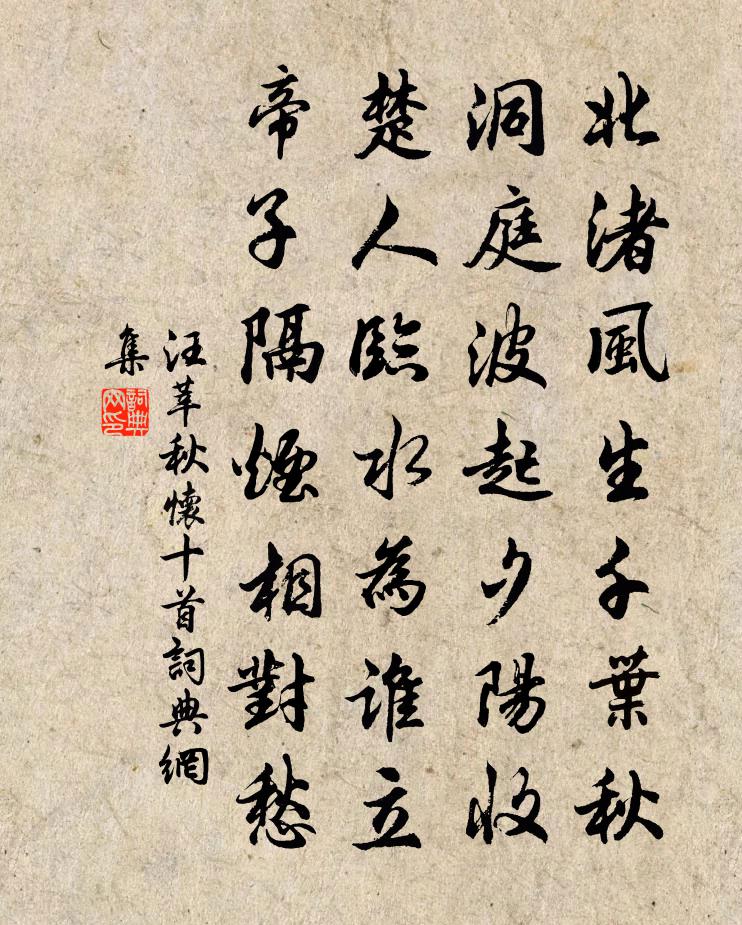 北渚風生千葉秋
洞庭波起夕陽收
楚人臨水為誰立
帝子隔煙相對愁
汪莘秋懷十首詞典網
集
詞典
网印